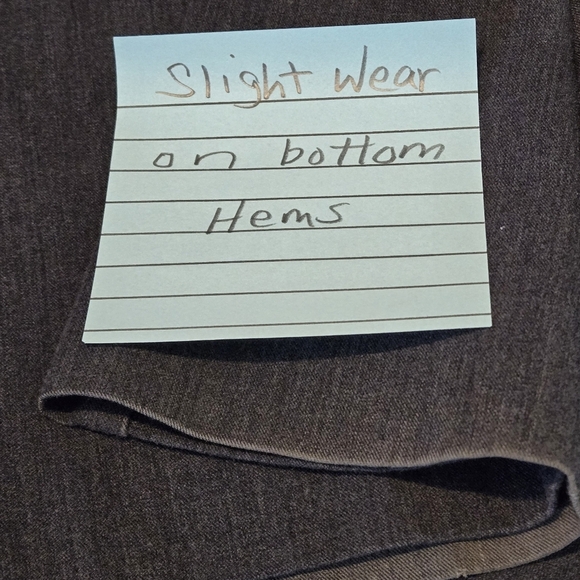 Slight Wear
on bottom
Hems